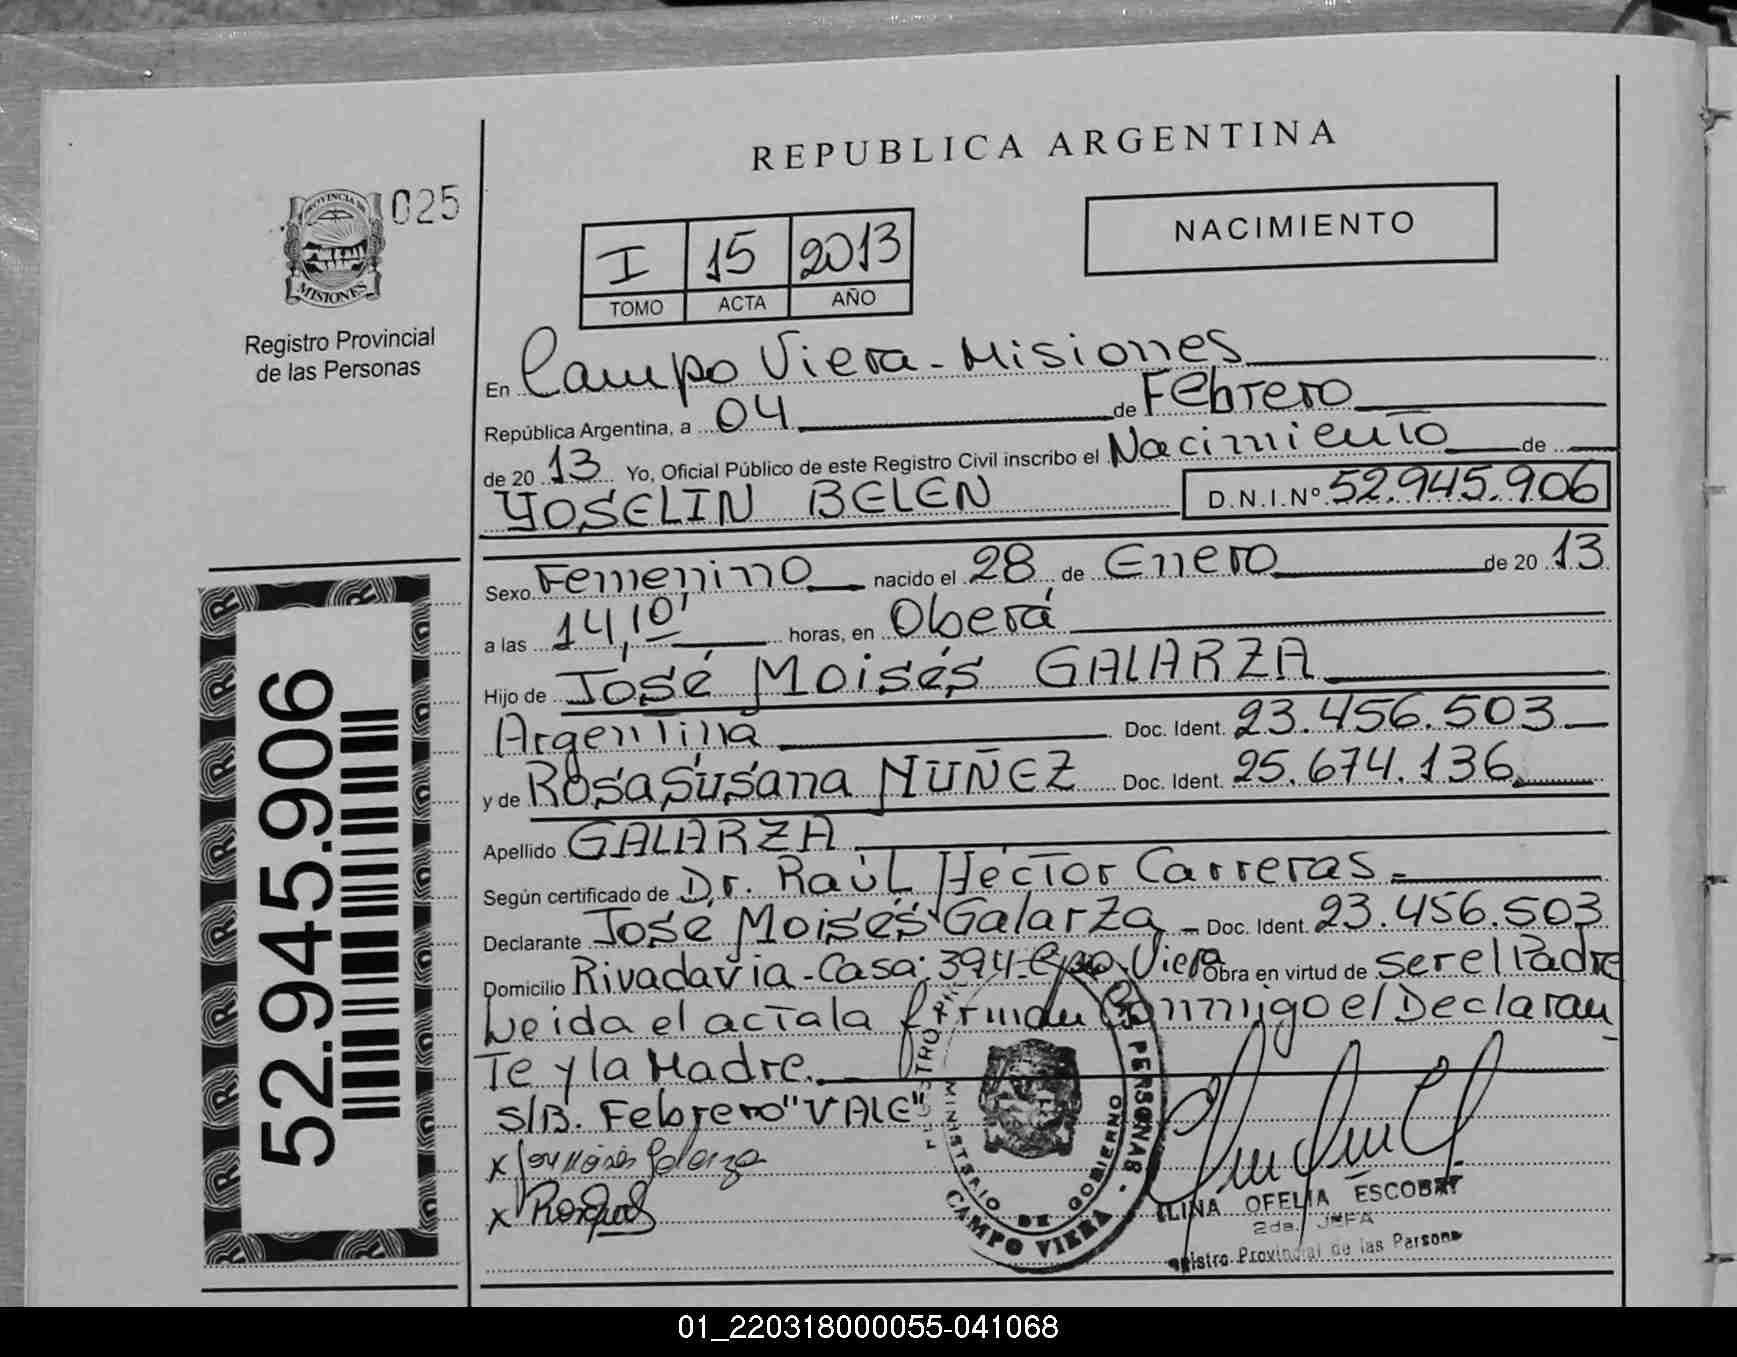 REPUBLICA ARGENTINA
PROVINCIA DE
MISIONES
025
Registro Provincial
de las Personas
I 15 2013
TOMO ACTA AÑO
NACIMIENTO
En Campo Viera - Misiones
República Argentina, a 04 de Febrero
de 20 13 Yo, Oficial Público de este Registro Civil inscribo el Nacimiento de
YOSELIN BELEN D.N.I.Nº 52.945.906
Sexo Femenino nacido el 28 de Enero de 20 13
a las 14,10' horas, en Oberá
Hijo de José Moisés GALARZA
Argentina Doc. Ident. 23.456.503
y de Rosa Susana NUÑEZ Doc. Ident. 25.674.136
Apellido GALARZA
Según certificado de Dr. Raúl Héctor Carreras
Declarante José Moisés Galarza - Doc. Ident. 23.456.503
Domicilio Rivadavia - Casa: 394 - Cpo. Viera Obra en virtud de ser el Padre
Leida el acta la firman Conmigo el Declaran
te y la Madre.
S/B. Febrero "VALE"
x José Moisés Galarza
x
52.945.906
PERSONAS -
MINISTERIO DE GOBIERNO
CAMPO VIERA
OFELIA ESCOBAR
2da. JEFA
Registro Provincial de las Personas
01_220318000055-041068